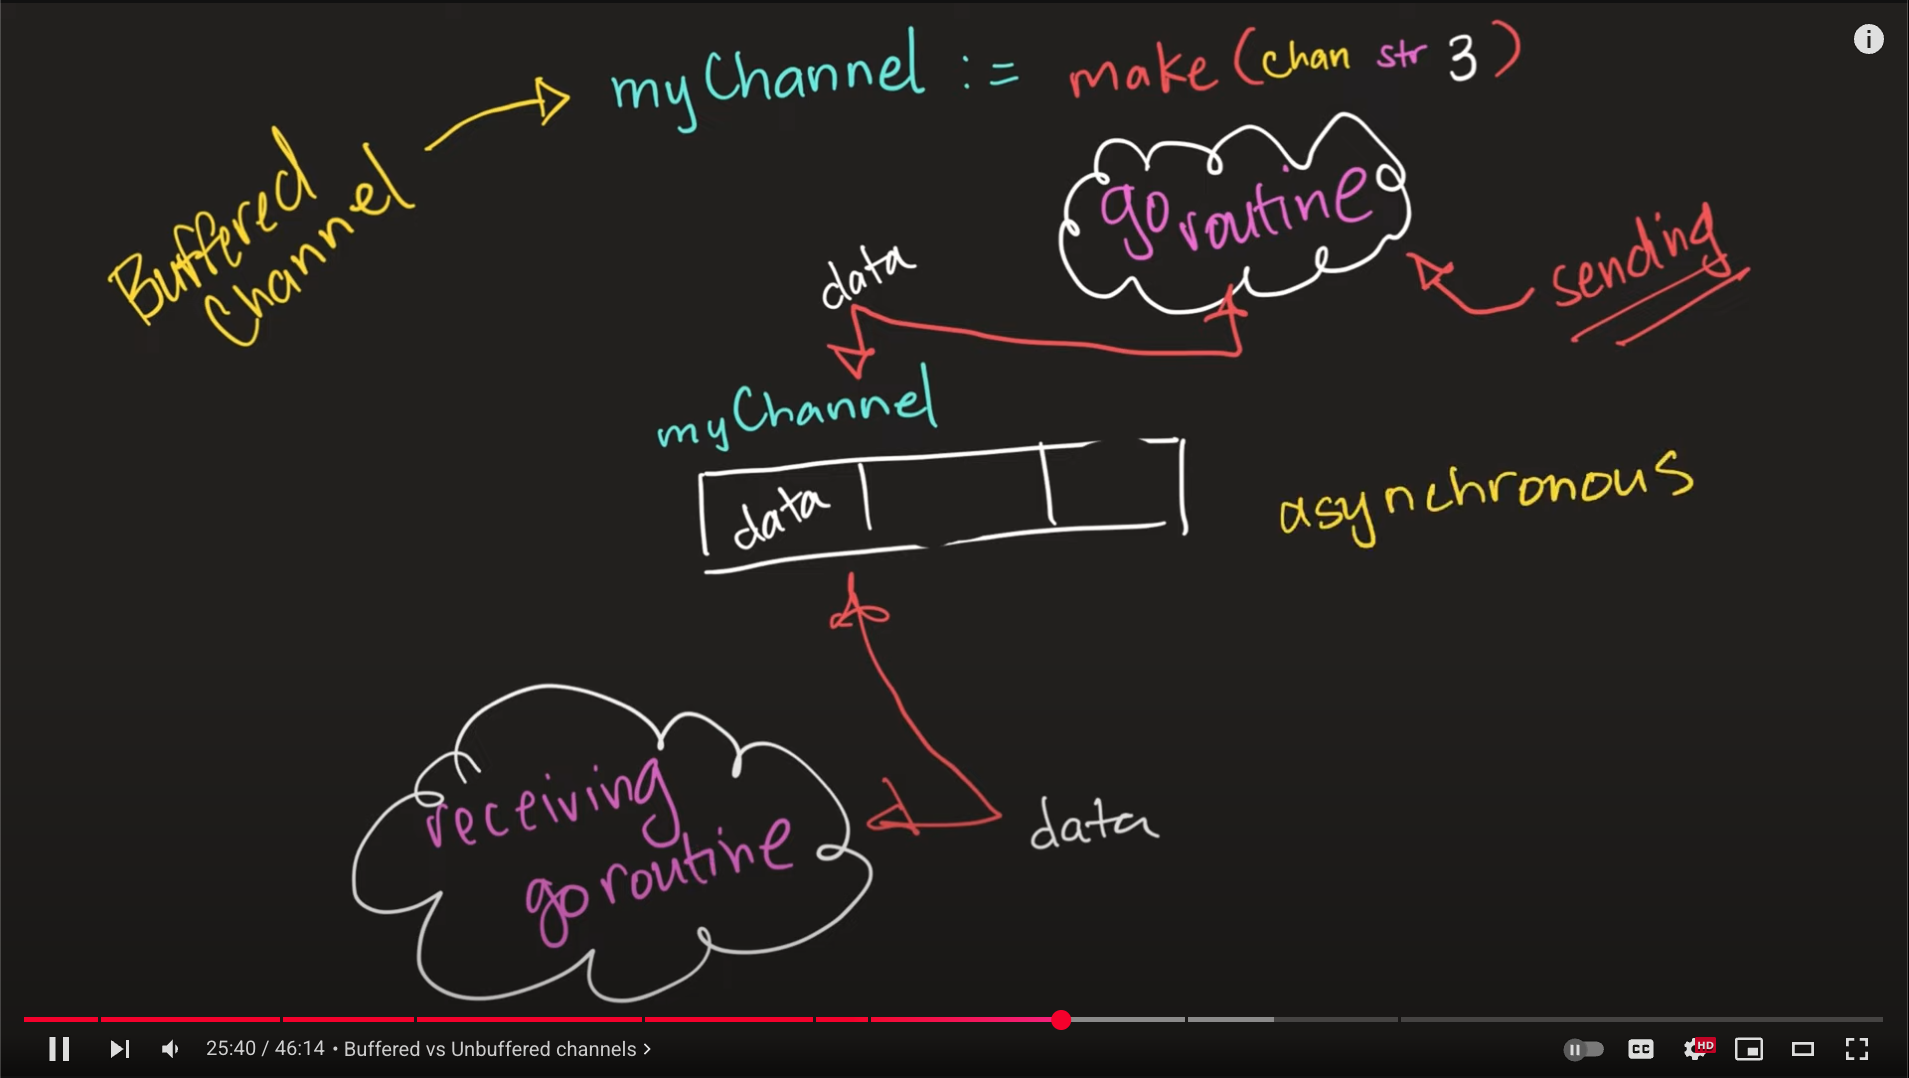 myChannel := make(chan str 3)
Buffered
Channel
goroutine
sending
data
myChannel
data
asynchronous
receiving
goroutine
data
25:40 / 46:14 • Buffered vs Unbuffered channels
CC
HD